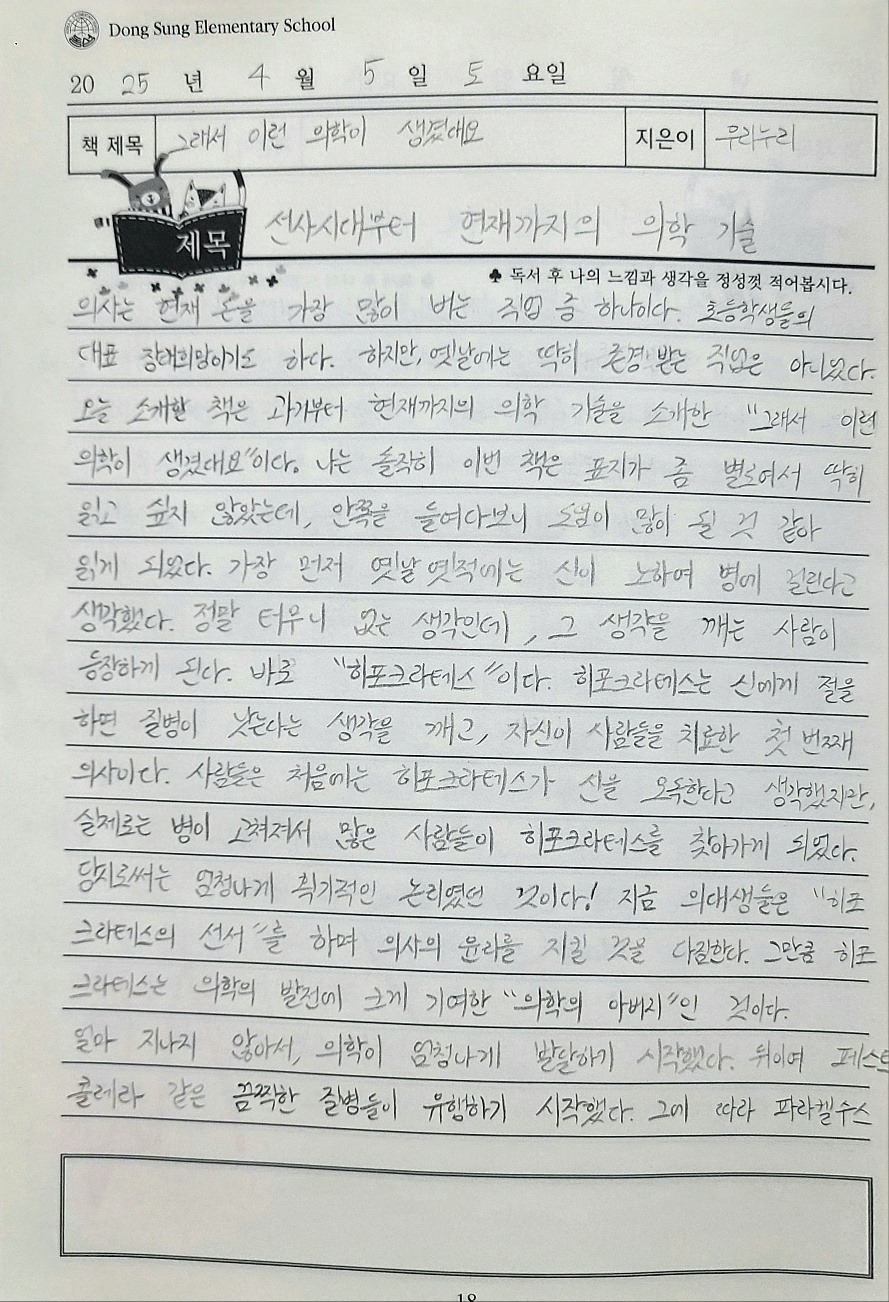 Dong Sung Elementary School
20 25 년 4 월 5 일 토 요일
책 제목 그래서 이런 의학이 생겼대요 지은이 우리누리
제목 선사시대부터 현재까지의 의학 기술
♣ 독서 후 나의 느낌과 생각을 정성껏 적어봅시다.
의사는 현재 돈을 가장 많이 버는 직업 중 하나이다. 초등학생들의
대표 장래희망이기도 하다. 하지만, 옛날에는 딱히 존경 받는 직업은 아니었다.
오늘 소개할 책은 과거부터 현재까지의 의학 기술을 소개한 "그래서 이런
의학이 생겼대요"이다. 나는 솔직히 이번 책은 표지가 좀 별로여서 딱히
읽고 싶지 않았는데, 안쪽을 들여다보니 도움이 많이 될 것 같아
읽게 되었다. 가장 먼저 옛날 옛적에는 신이 노하여 병에 걸린다고
생각했다. 정말 터무니 없는 생각인데, 그 생각을 깨는 사람이
등장하게 된다. 바로 "히포크라테스"이다. 히포크라테스는 신에게 절을
하면 질병이 낫는다는 생각을 깨고, 자신이 사람들을 치료한 첫 번째
의사이다. 사람들은 처음에는 히포크라테스가 신을 모독한다고 생각했지만,
실제로는 병이 고쳐져서 많은 사람들이 히포크라테스를 찾아가게 되었다.
당시로써는 엄청나게 획기적인 논리였던 것이다! 지금 의대생들은 "히포
크라테스의 선서"를 하며 의사의 윤리를 지킬 것을 다짐한다. 그만큼 히포
크라테스는 의학의 발전에 크게 기여한 "의학의 아버지"인 것이다.
얼마 지나지 않아서, 의학이 엄청나게 발달하기 시작했다. 뒤이여 페스트
콜레라 같은 끔찍한 질병들이 유행하기 시작했다. 그에 따라 파라켈수스
18